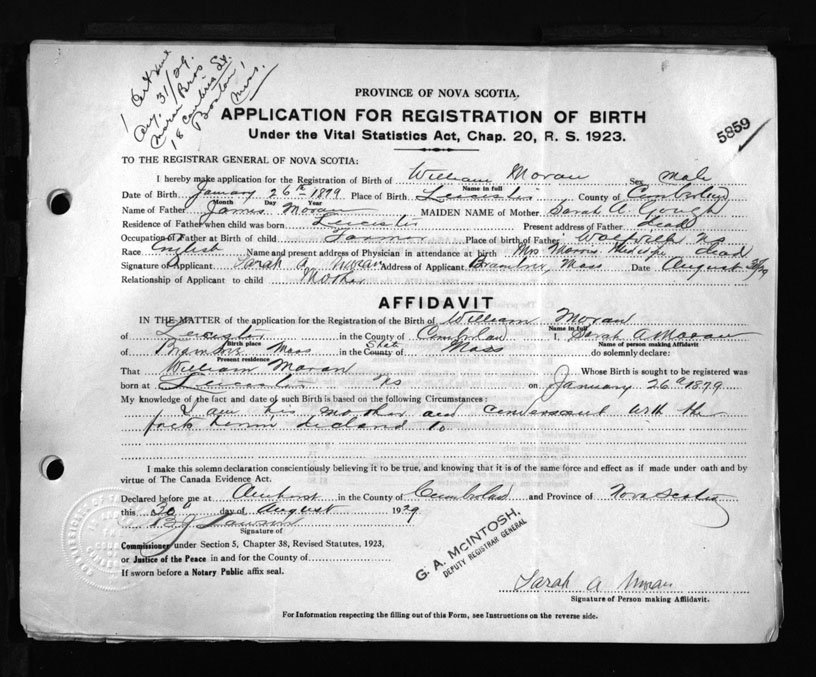 1 Cert sent
Aug. 31/29.
Moran Bros
18 St.
Boston,
Mass.
PROVINCE OF NOVA SCOTIA.
APPLICATION FOR REGISTRATION OF BIRTH
Under the Vital Statistics Act, Chap. 20, R. S. 1923.
5859
TO THE REGISTRAR GENERAL OF NOVA SCOTIA:
I hereby make application for the Registration of Birth of William Moran Sex Male
Name in full
Date of Birth January 26th 1879 Place of Birth Leicester County of Cumberland
Month Day Year
Name of Father James Moran MAIDEN NAME of Mother Sarah A. Gough
Residence of Father when child was born Leicester Present address of Father dead
Occupation of Father at Birth of child Farmer Place of birth of Father NS
Race English Name and present address of Physician in attendance at birth Mrs Morris Midwife dead
Signature of Applicant Sarah A Moran Address of Applicant Mass Date August
Relationship of Applicant to child Mother
AFFIDAVIT
IN THE MATTER of the application for the Registration of the Birth of William Moran
Name in full
of Leicester in the County of Cumberland I, Sarah A Moran
Birth place Name of person making Affidavit
of Mass in the State County of Mass do solemnly declare:
Present residence
That William Moran Whose Birth is sought to be registered was
born at Leicester NS on January 26th 1879
My knowledge of the fact and date of such Birth is based on the following Circumstances:
I am his mother and conversant with the
facts herein declared to
I make this solemn declaration conscientiously believing it to be true, and knowing that it is of the same force and effect as if made under oath and by
virtue of The Canada Evidence Act.
Declared before me at Amherst in the County of Cumberland and Province of Nova Scotia
this 30th day of August 1929
Lawson
Signature of
Commissioner under Section 5, Chapter 38, Revised Statutes, 1923,
or Justice of the Peace in and for the County of
If sworn before a Notary Public affix seal.
G. A. McINTOSH,
DEPUTY REGISTRAR GENERAL
Sarah A Moran
Signature of Person making Affidavit.
For Information respecting the filling out of this Form, see Instructions on the reverse side.